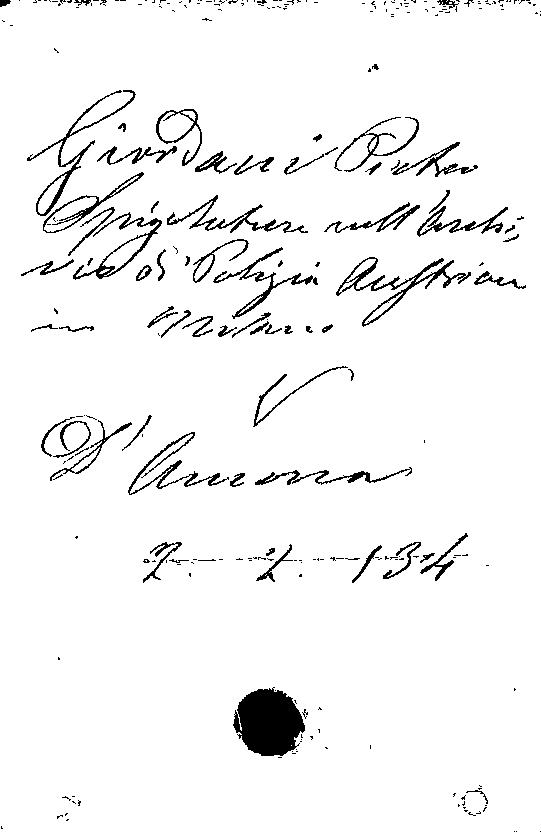 Giordani Pietro
Spigolature nell'Archi,
vio di Polizia Austriaca
in Milano
V
D'Ancona
2. 2. 134